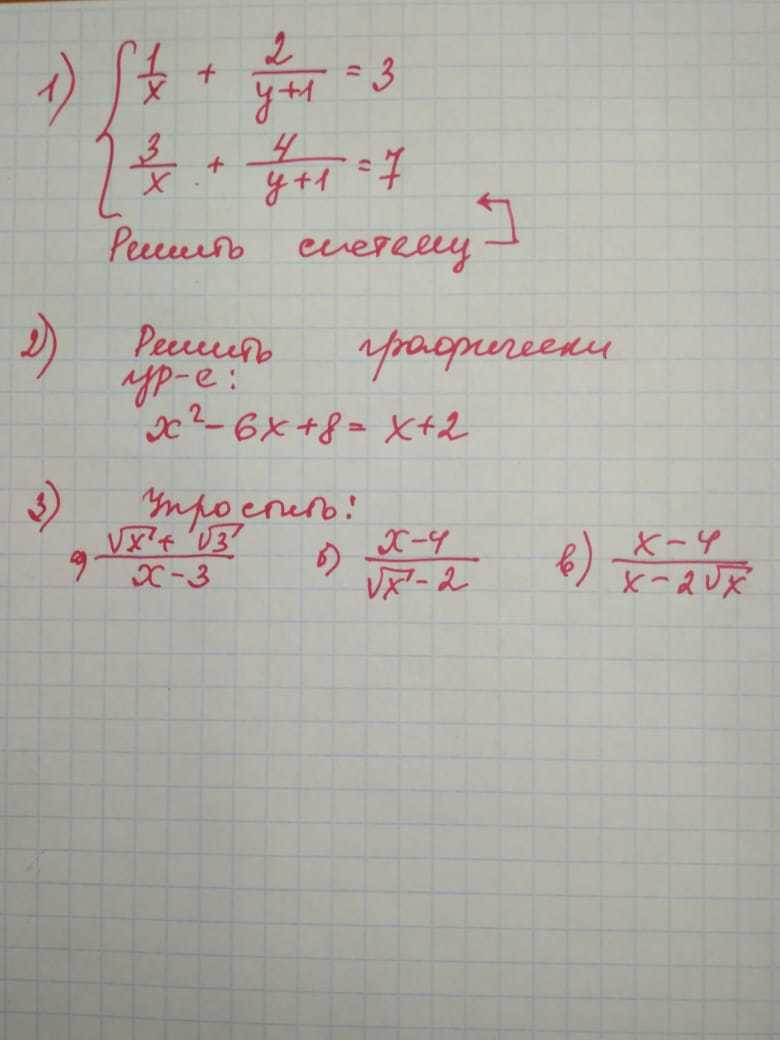 1) { 1/x + 2/(y+1) = 3
3/x + 4/(y+1) = 7
Решить систему
2) Решить графически
ур-е:
x² - 6x + 8 = x + 2
3) Упростить:
а) (√x + √3)/(x - 3) б) (x - 4)/(√x - 2) в) (x - 4)/(x - 2√x)